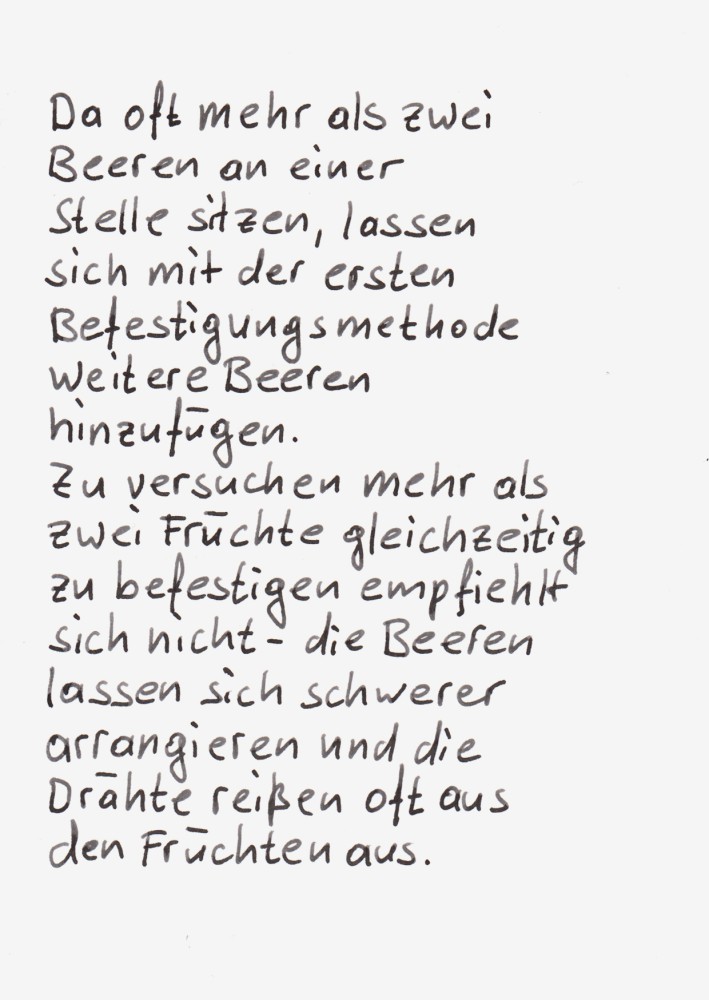 Da oft mehr als zwei
Beeren an einer
Stelle sitzen, lassen
sich mit der ersten
Befestigungsmethode
weitere Beeren
hinzufügen.
Zu versuchen mehr als
zwei Früchte gleichzeitig
zu befestigen empfiehlt
sich nicht - die Beeren
lassen sich schwerer
arrangieren und die
Drähte reißen oft aus
den Früchten aus.